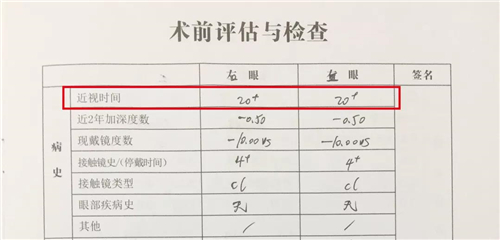 术前评估与检查
右 眼 左 眼 签名
病史
近视时间 20+ 20+
近2年加深度数 -0.50 -0.50
现戴镜度数 -10.00DS -10.00DS
接触镜史/(停戴时间) 4+ 4+
接触镜类型 cl cl
眼部疾病史 无 无
其他 / /